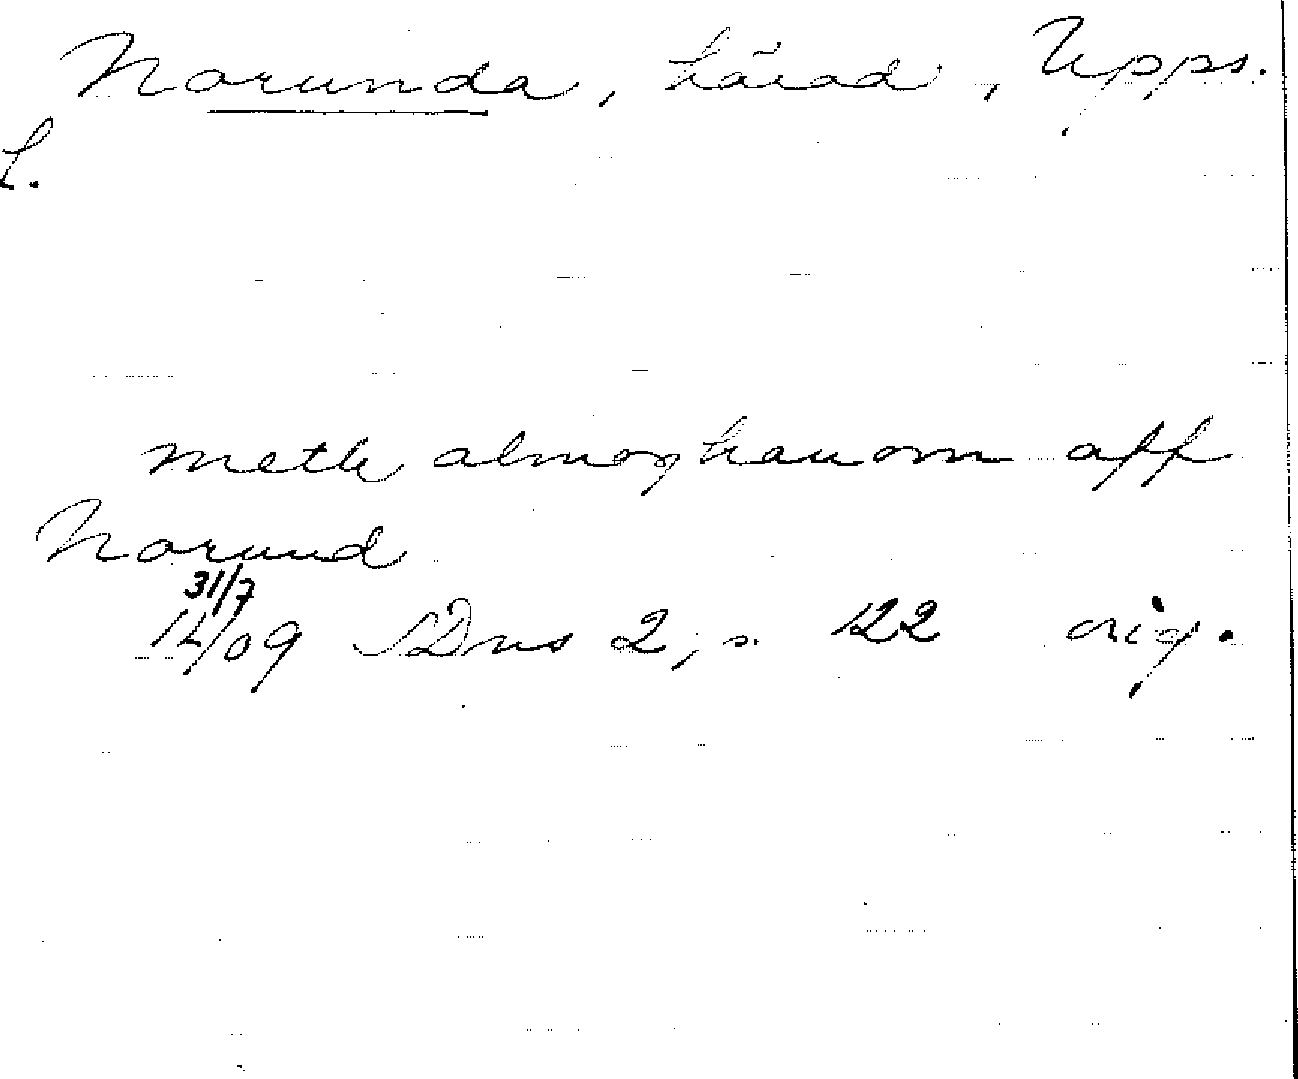 Norunda, härad, Upps.
L.
meth almoghanom aff
Norund
31/7
14/09 SDns 2, s. 122 orig.